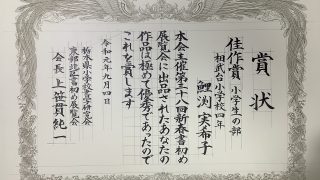 賞状
佳作賞 小学生の部
相武台小学校四年
鯉渕 実希子
本会主催第三十八回新春書初め
展覧会に出品されたあなたの
作品は極めて優秀であったので
これを賞します
令和元年九月四日
栃木県小学校書写研究会
東部地区書初め展覧会
会長 上笹貫純一